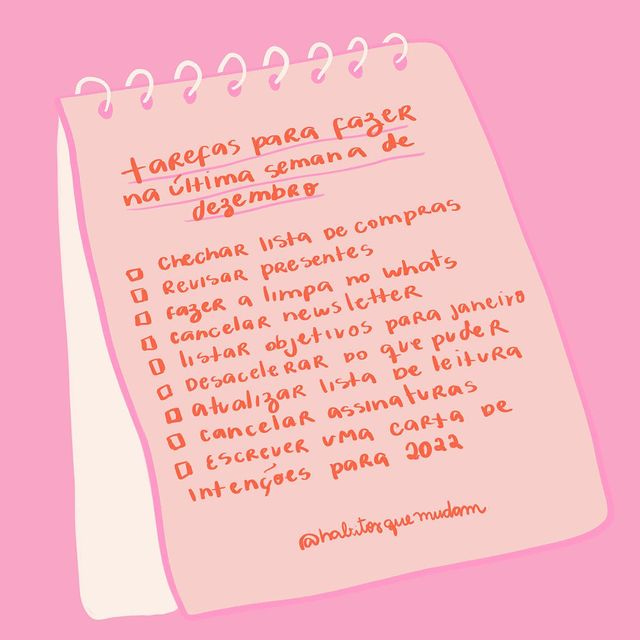 tarefas para fazer
na última semana de
dezembro
chechar lista de compras
revisar presentes
fazer a limpa no whats
cancelar newsletter
listar objetivos para janeiro
desacelerar do que puder
atualizar lista de leitura
cancelar assinaturas
escrever uma carta de
intenções para 2022
@habitosquemudam